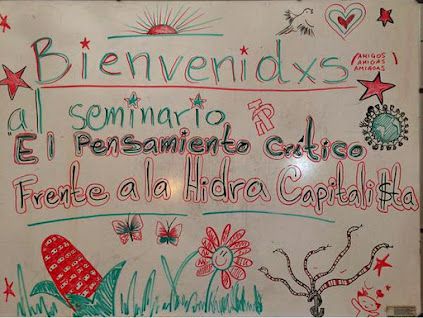 Bienvenidxs
AMIGOS
AMIGAS
al seminario
"El Pensamiento Crítico
Frente a la Hidra Capitali$ta